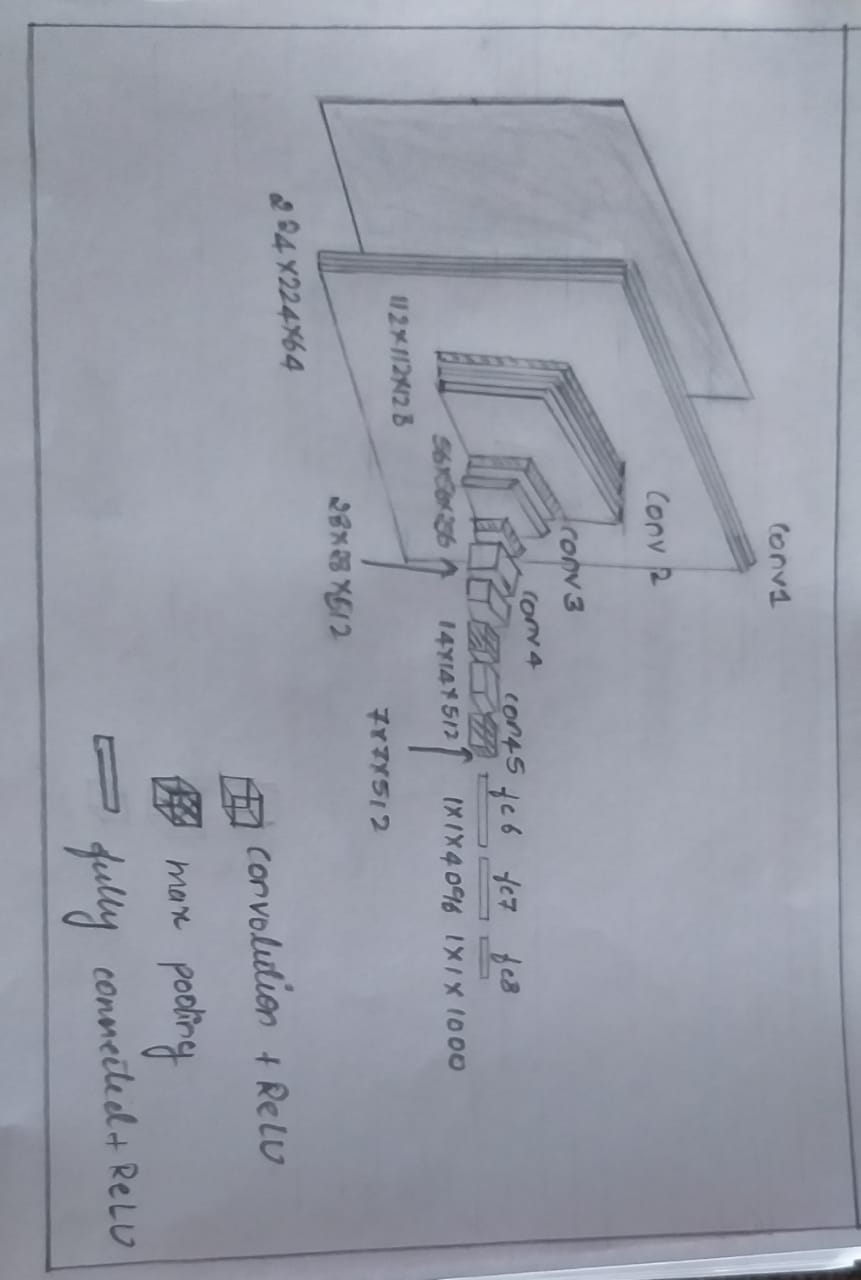 conv1
conv 2
conv 3
conv 4
con45
fc6
fc7
fc8
224×224×64
112×112×128
56×56×256
28×28×512
14×14×512
7×7×512
1×1×4096
1×1×1000
convolution + ReLU
max pooling
fully connected + ReLU